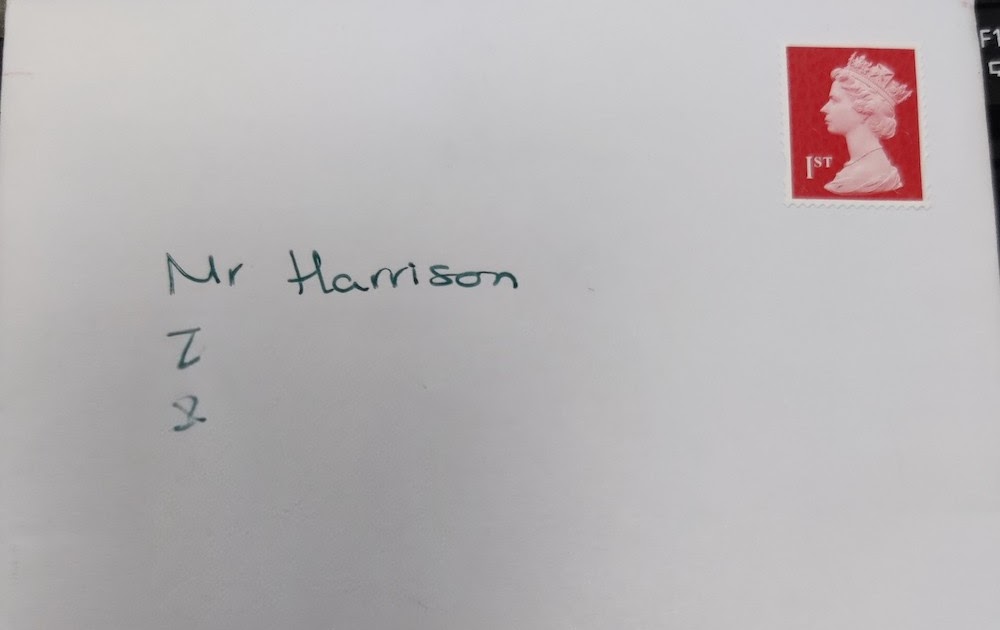 1ST
Mr Harrison
Z
&
F1